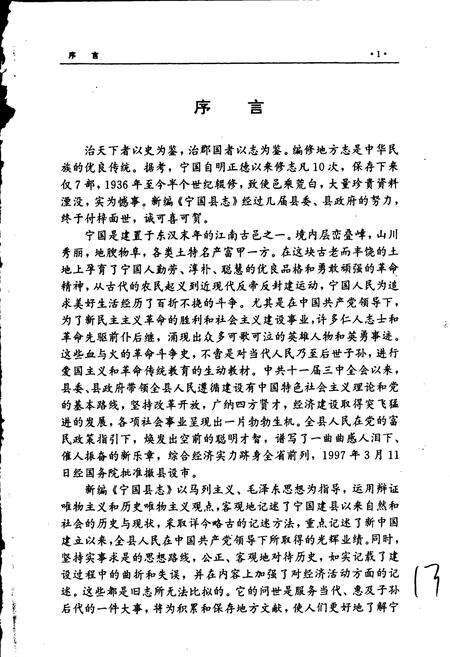 序 言 ·1·
序 言
治天下者以史为鉴，治郡国者以志为鉴。编修地方志是中华民
族的优良传统。据考，宁国自明正德以来修志凡10次，保存下来
仅7部，1936年至今半个世纪辍修，致使邑乘荒白，大量珍贵资料
湮没，实为憾事。新编《宁国县志》经过几届县委、县政府的努力，
终于付梓面世，诚可喜可贺。
宁国是建置于东汉末年的江南古邑之一。境内层峦叠峰，山川
秀丽，地腴物阜，各类土特名产富甲一方。在这块古老而丰饶的土
地上孕育了宁国人勤劳、淳朴、聪慧的优良品格和勇敢顽强的革命
精神，从古代的农民起义到近现代反帝反封建运动，宁国人民为追
求美好生活经历了百折不挠的斗争。尤其是在中国共产党领导下，
为了新民主主义革命的胜利和社会主义建设事业，许多仁人志士和
革命先驱前仆后继，涌现出众多可歌可泣的英雄人物和英勇事迹。
这些血与火的革命斗争史，不啻是对当代人民乃至后世子孙，进行
爱国主义和革命传统教育的生动教材。中共十一届三中全会以来，
县委、县政府带领全县人民遵循建设有中国特色社会主义理论和党
的基本路线，坚持改革开放，广纳四方贤才，经济建设取得突飞猛
进的发展，各项社会事业呈现出一片勃勃生机。全县人民在党的富
民政策指引下，焕发出空前的聪明才智，谱写了一曲曲感人泪下、
催人振奋的新乐章，综合经济实力跻身全省前列，1997年3月11
日经国务院批准撤县设市。
新编《宁国县志》以马列主义、毛泽东思想为指导，运用辩证
唯物主义和历史唯物主义观点，客观地记述了宁国建县以来自然和
社会的历史与现状，采取详今略古的记述方法，重点记述了新中国
建立以来，全县人民在中国共产党领导下所取得的光辉业绩。同时，
坚持实事求是的思想路线，公正、客观地对待历史，如实记载了建
设过程中的曲折和失误，并在内容上加强了对经济活动方面的记
述。这些都是旧志所无法比拟的。它的问世是服务当代、惠及子孙
后代的一件大事，将为积累和保存地方文献，使人们更好地了解宁
13